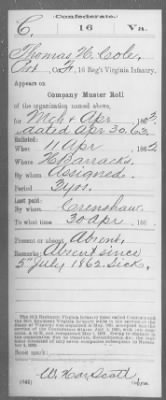 Confederate.
C. | 16 | Va.
Thomas H. Cole,
Co. H, 16 Reg't Virginia Infantry.
Appears on
Company Muster Roll
of the organization named above,
for Mch & Apr, 1863,
dated Apr. 30, 63.
Enlisted:
When 11 Apr, 1862
Where H. Barracks.
By whom Assigned.
Period 3 yrs.
Last paid:
By whom Crenshaw.
To what time 30 Apr, 186
Present or absent Absent,
Remarks: Absent since
5" July, 1862. Sick.
Book mark:
W. Harscott
(642) Copyist.